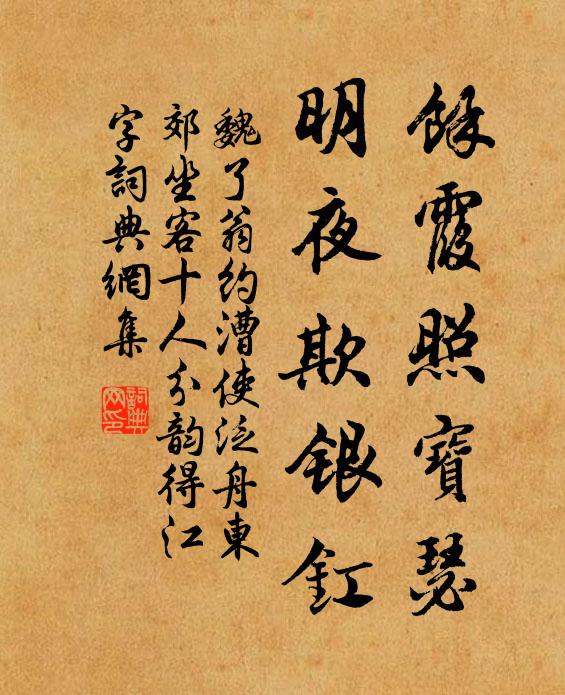 餘霞照寶瑟
明夜欺銀釭
魏了翁約漕使泛舟東
郊坐客十人分韵得江
字詞典網集
詞典網印